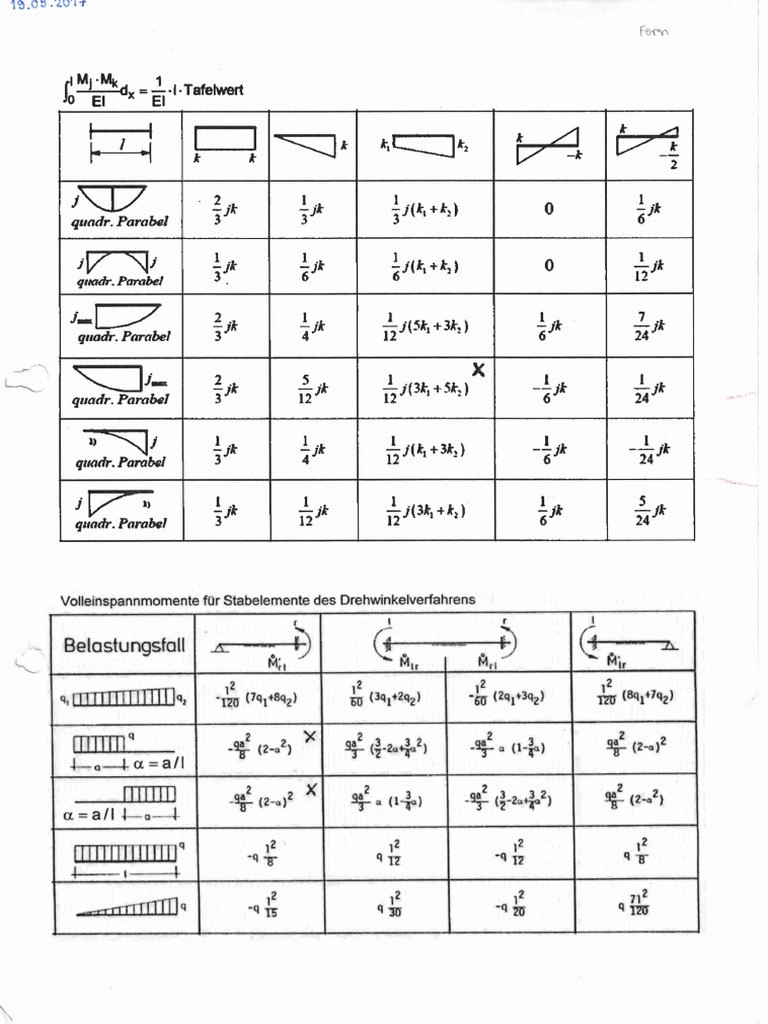 19.09.2017
Form
∫₀ˡ Mj·Mk/EI dx = 1/EI · l · Tafelwert
l k k k k₁ k₂ k -k k -k/2
j
quadr. Parabel 2/3 jk 1/3 jk 1/3 j(k₁+k₂) 0 1/6 jk
j j
quadr. Parabel 1/3 jk 1/6 jk 1/6 j(k₁+k₂) 0 1/12 jk
jmax
quadr. Parabel 2/3 jk 1/4 jk 1/12 j(5k₁+3k₂) 1/6 jk 7/24 jk
jmax x
quadr. Parabel 2/3 jk 5/12 jk 1/12 j(3k₁+5k₂) -1/6 jk 1/24 jk
1) j
quadr. Parabel 1/3 jk 1/4 jk 1/12 j(k₁+3k₂) -1/6 jk -1/24 jk
j 1)
quadr. Parabel 1/3 jk 1/12 jk 1/12 j(3k₁+k₂) 1/6 jk 5/24 jk
Volleinspannmomente für Stabelemente des Drehwinkelverfahrens
r l r l
Belastungsfall M̊'rl M̊lr M̊rl M̊'lr
q₁ q₂ -l²/120 (7q₁+8q₂) l²/60 (3q₁+2q₂) -l²/60 (2q₁+3q₂) l²/120 (8q₁+7q₂)
q x
a α = a/l -qa²/8 (2-α²) qa²/3 (3/2-2α+3/4α²) -qa²/3 α (1-3/4α) qa²/8 (2-α)²
x
α = a/l a -qa²/8 (2-α)² qa²/3 α (1-3/4α) -qa²/3 (3/2-2α+3/4α²) qa²/8 (2-α²)
q l -q l²/8 q l²/12 -q l²/12 q l²/8
q -q l²/15 q l²/30 -q l²/20 q 7l²/120